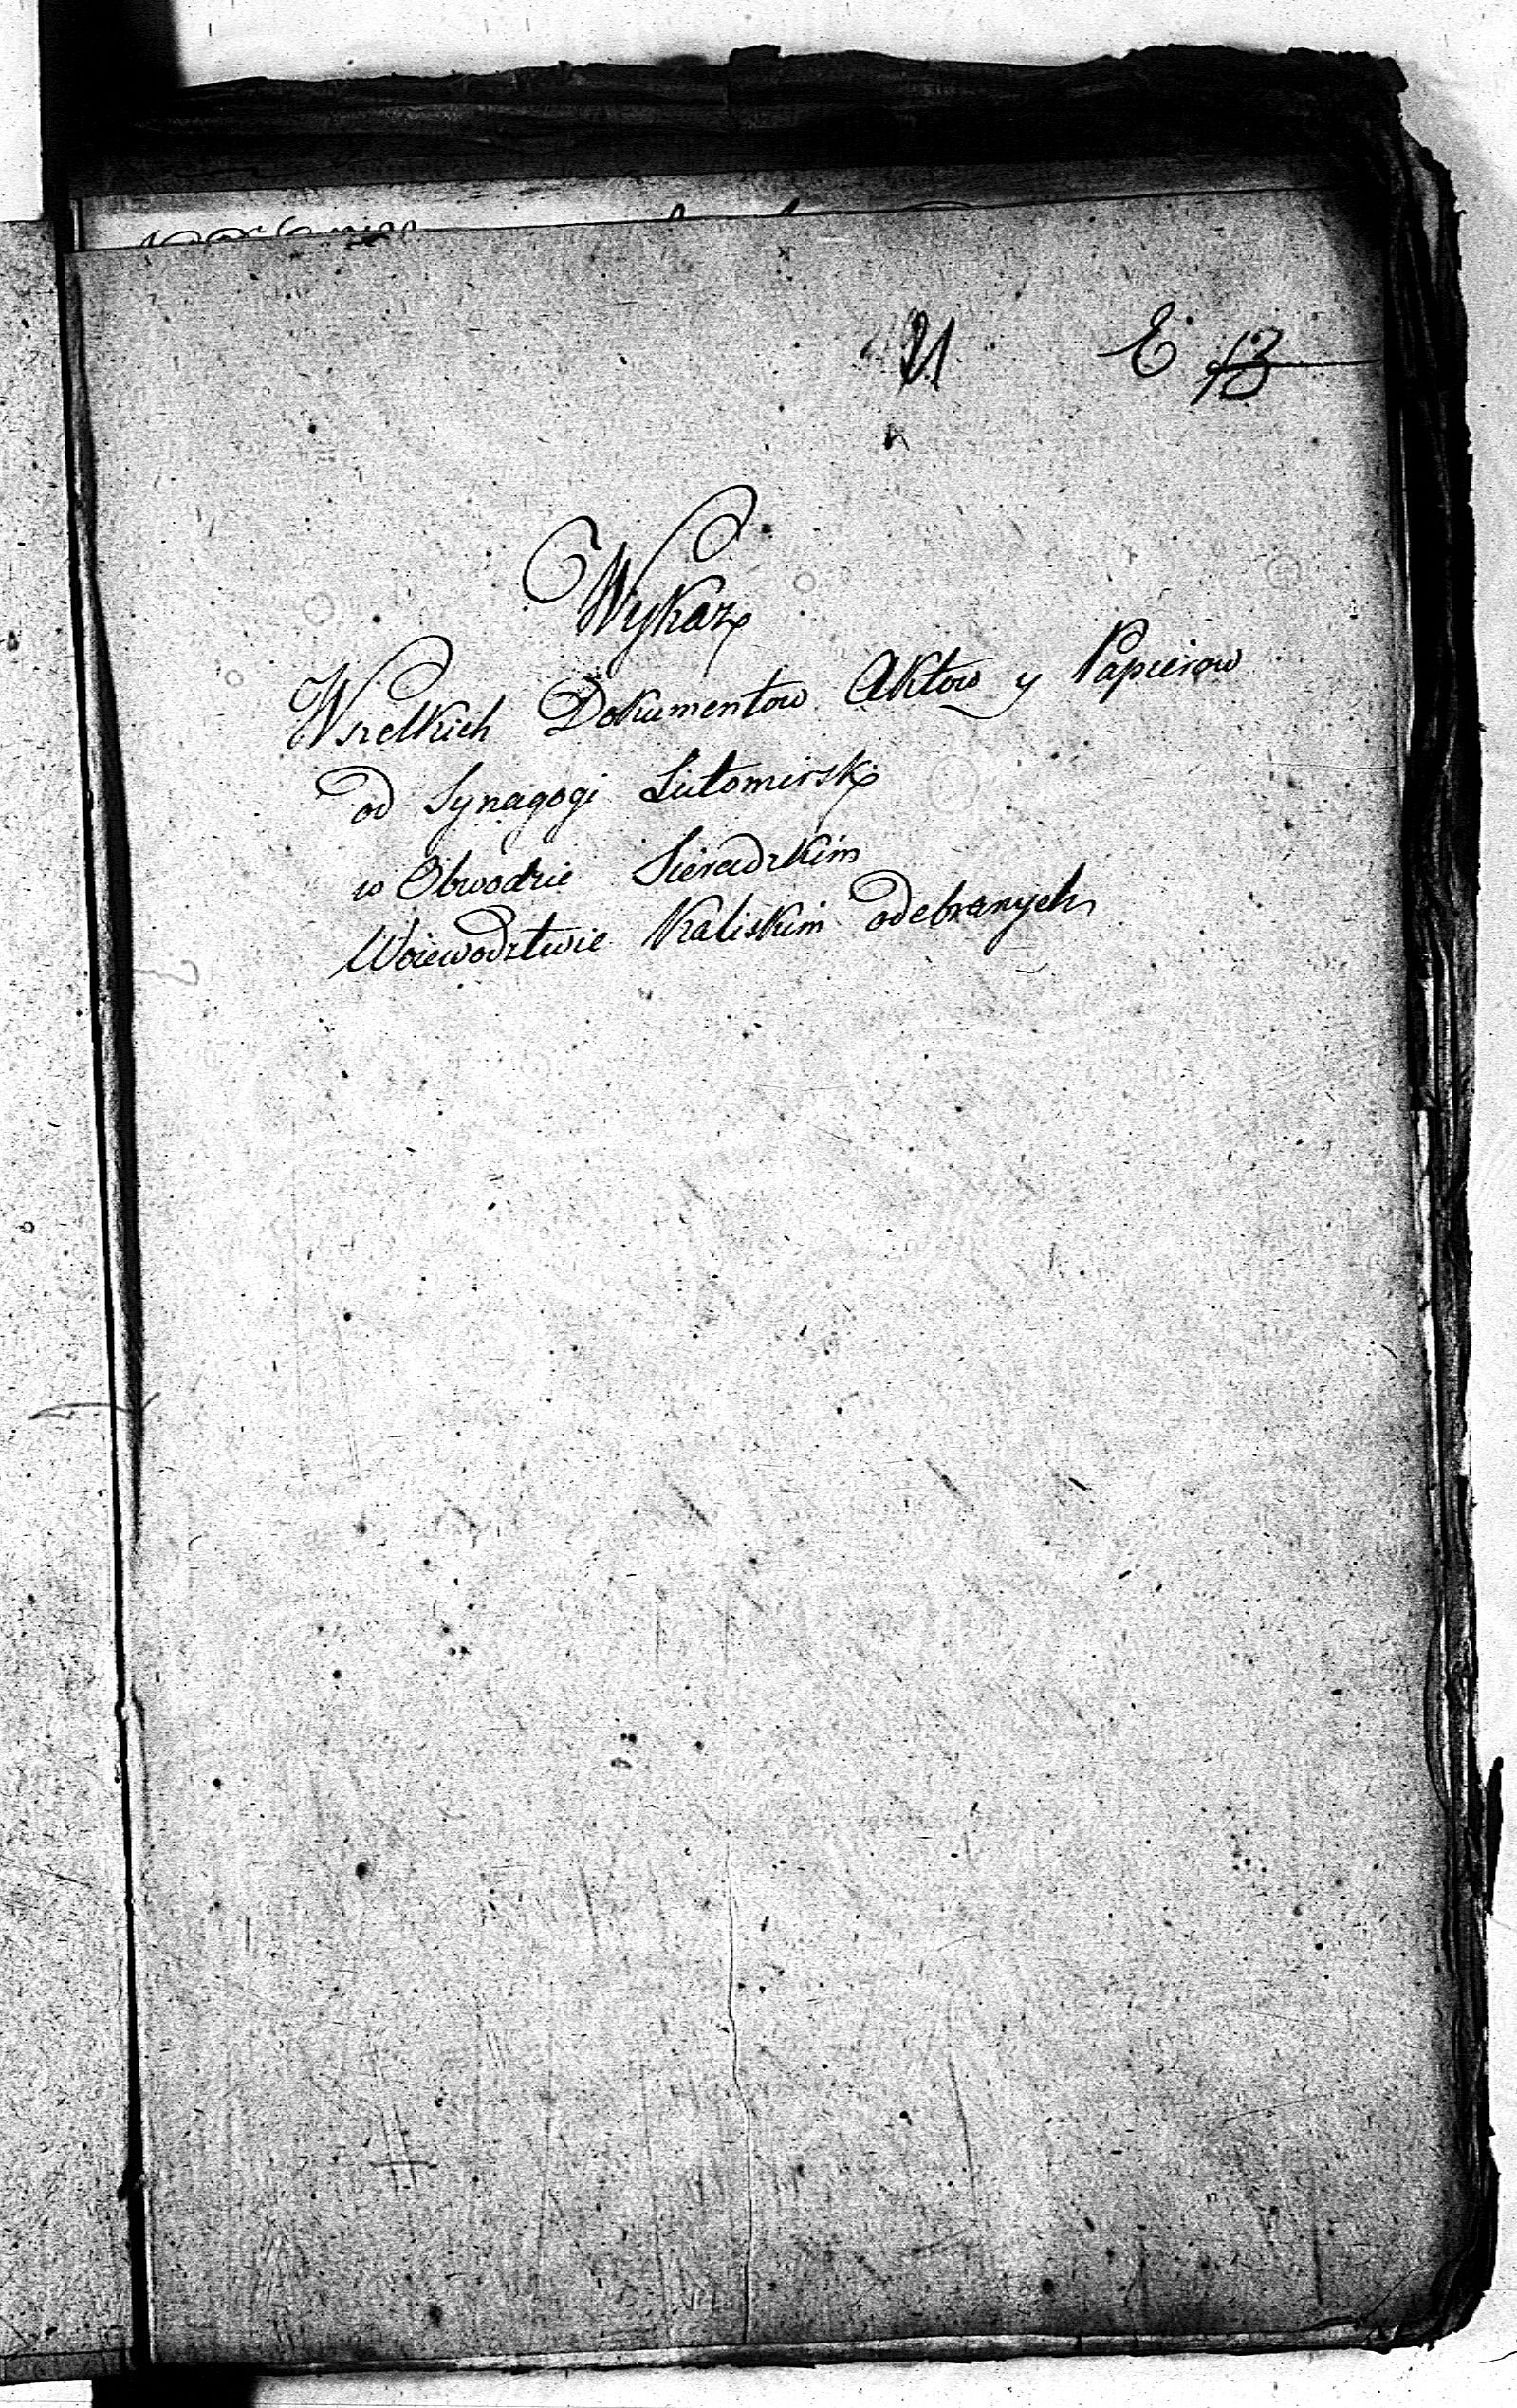 21 E 13
Wykaz
Wszelkich Dokumentow Aktow y Papierow
od Synagogi Lutomirsk
w Obwodzie Sieradzkim
Woiewodztwie Kaliskim odebranych